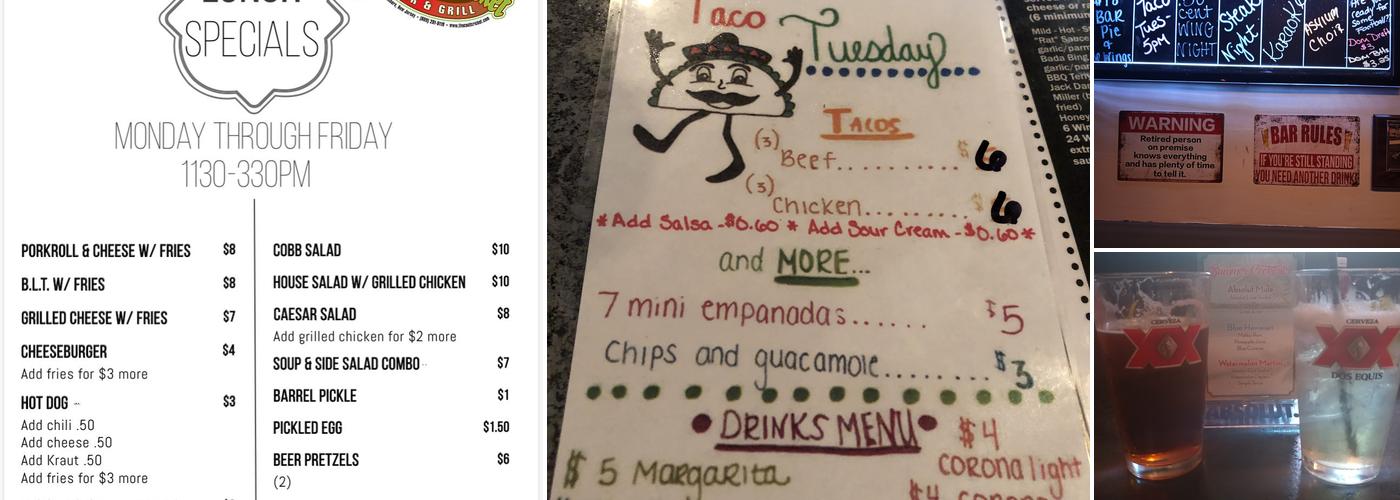 LUNCH
SPECIALS
MONDAY THROUGH FRIDAY
1130-330PM
PORKROLL & CHEESE W/ FRIES $8
B.L.T. W/ FRIES $8
GRILLED CHEESE W/ FRIES $7
CHEESEBURGER $4
Add fries for $3 more
HOT DOG $3
Add chili .50
Add cheese .50
Add Kraut .50
Add fries for $3 more
COBB SALAD $10
HOUSE SALAD W/ GRILLED CHICKEN $10
CAESAR SALAD $8
Add grilled chicken for $2 more
SOUP & SIDE SALAD COMBO $7
BARREL PICKLE $1
PICKLED EGG $1.50
BEER PRETZELS $6
(2)
& GRILL
Taco
Tuesday
TACOS
(3) Beef.......... $6
(3) Chicken......... $6
*Add Salsa -$0.60 * Add Sour Cream -$0.60*
and MORE...
7 mini empanadas...... $5
Chips and guacamole......... $3
DRINKS MENU
$5 Margarita
$4
corona light
$4
cheese or
(6 minimum
Mild - Hot - S
"Rat" Sauce
garlic/par
Bada Bing
garlic/pa
BBQ Teriy
Jack Da
Miller (b
fried)
Honey
6 Win
24 W
extr
sau
BAR
Pie
&
Wings
Taco
Tues-
5pm
50
cent
WING
NIGHT
Steak
Night
Karaoke
Choix
ready
for
Some
Football?
WARNING
Retired person
on premise
knows everything
and has plenty of time
to tell it.
BAR RULES
IF YOU'RE STILL STANDING
YOU NEED ANOTHER DRINK
CERVEZA
XX
Summer Cocktails
Absolut Mule
Blue Hawaiian
Watermelon Martini
ABSOLUT
CERVEZA
XX
DOS EQUIS